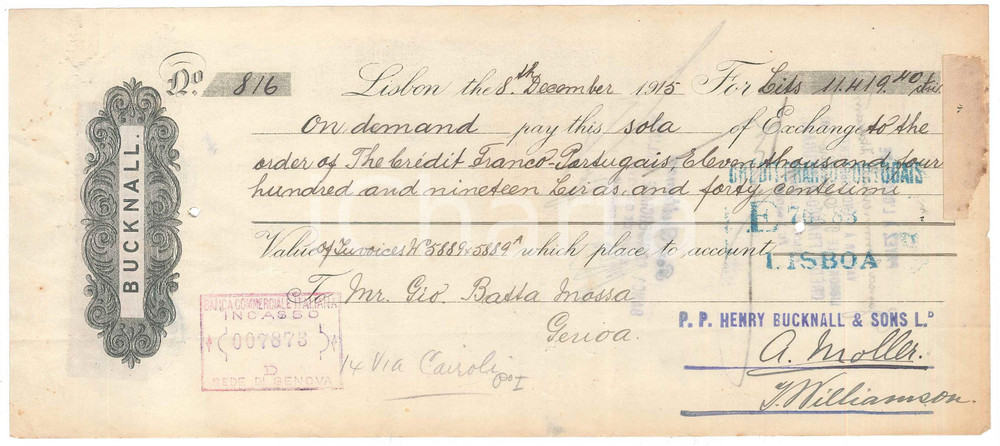 BUCKNALL.
No 816 Lisbon the 8th December 1915 For Lits 11.419.40
On demand pay this sola of Exchange to the
order of The Crédit Franco-Portugais Eleven thousand four
hundred and nineteen Leiras and forty centeumi
CRÉDIT FRANCO-PORTUGAIS
E
LISBOA
Value of Invoices No 5889 & 5889A which place to account
To Mr. Gio. Batta Mossa
Genoa.
14 Via Cairoli
BANCA COMMERCIALE ITALIANA
INCASSO
007873
D
SEDE DI GENOVA
P. P. HENRY BUCKNALL & SONS LD
A. Moller.
J. Williamson.